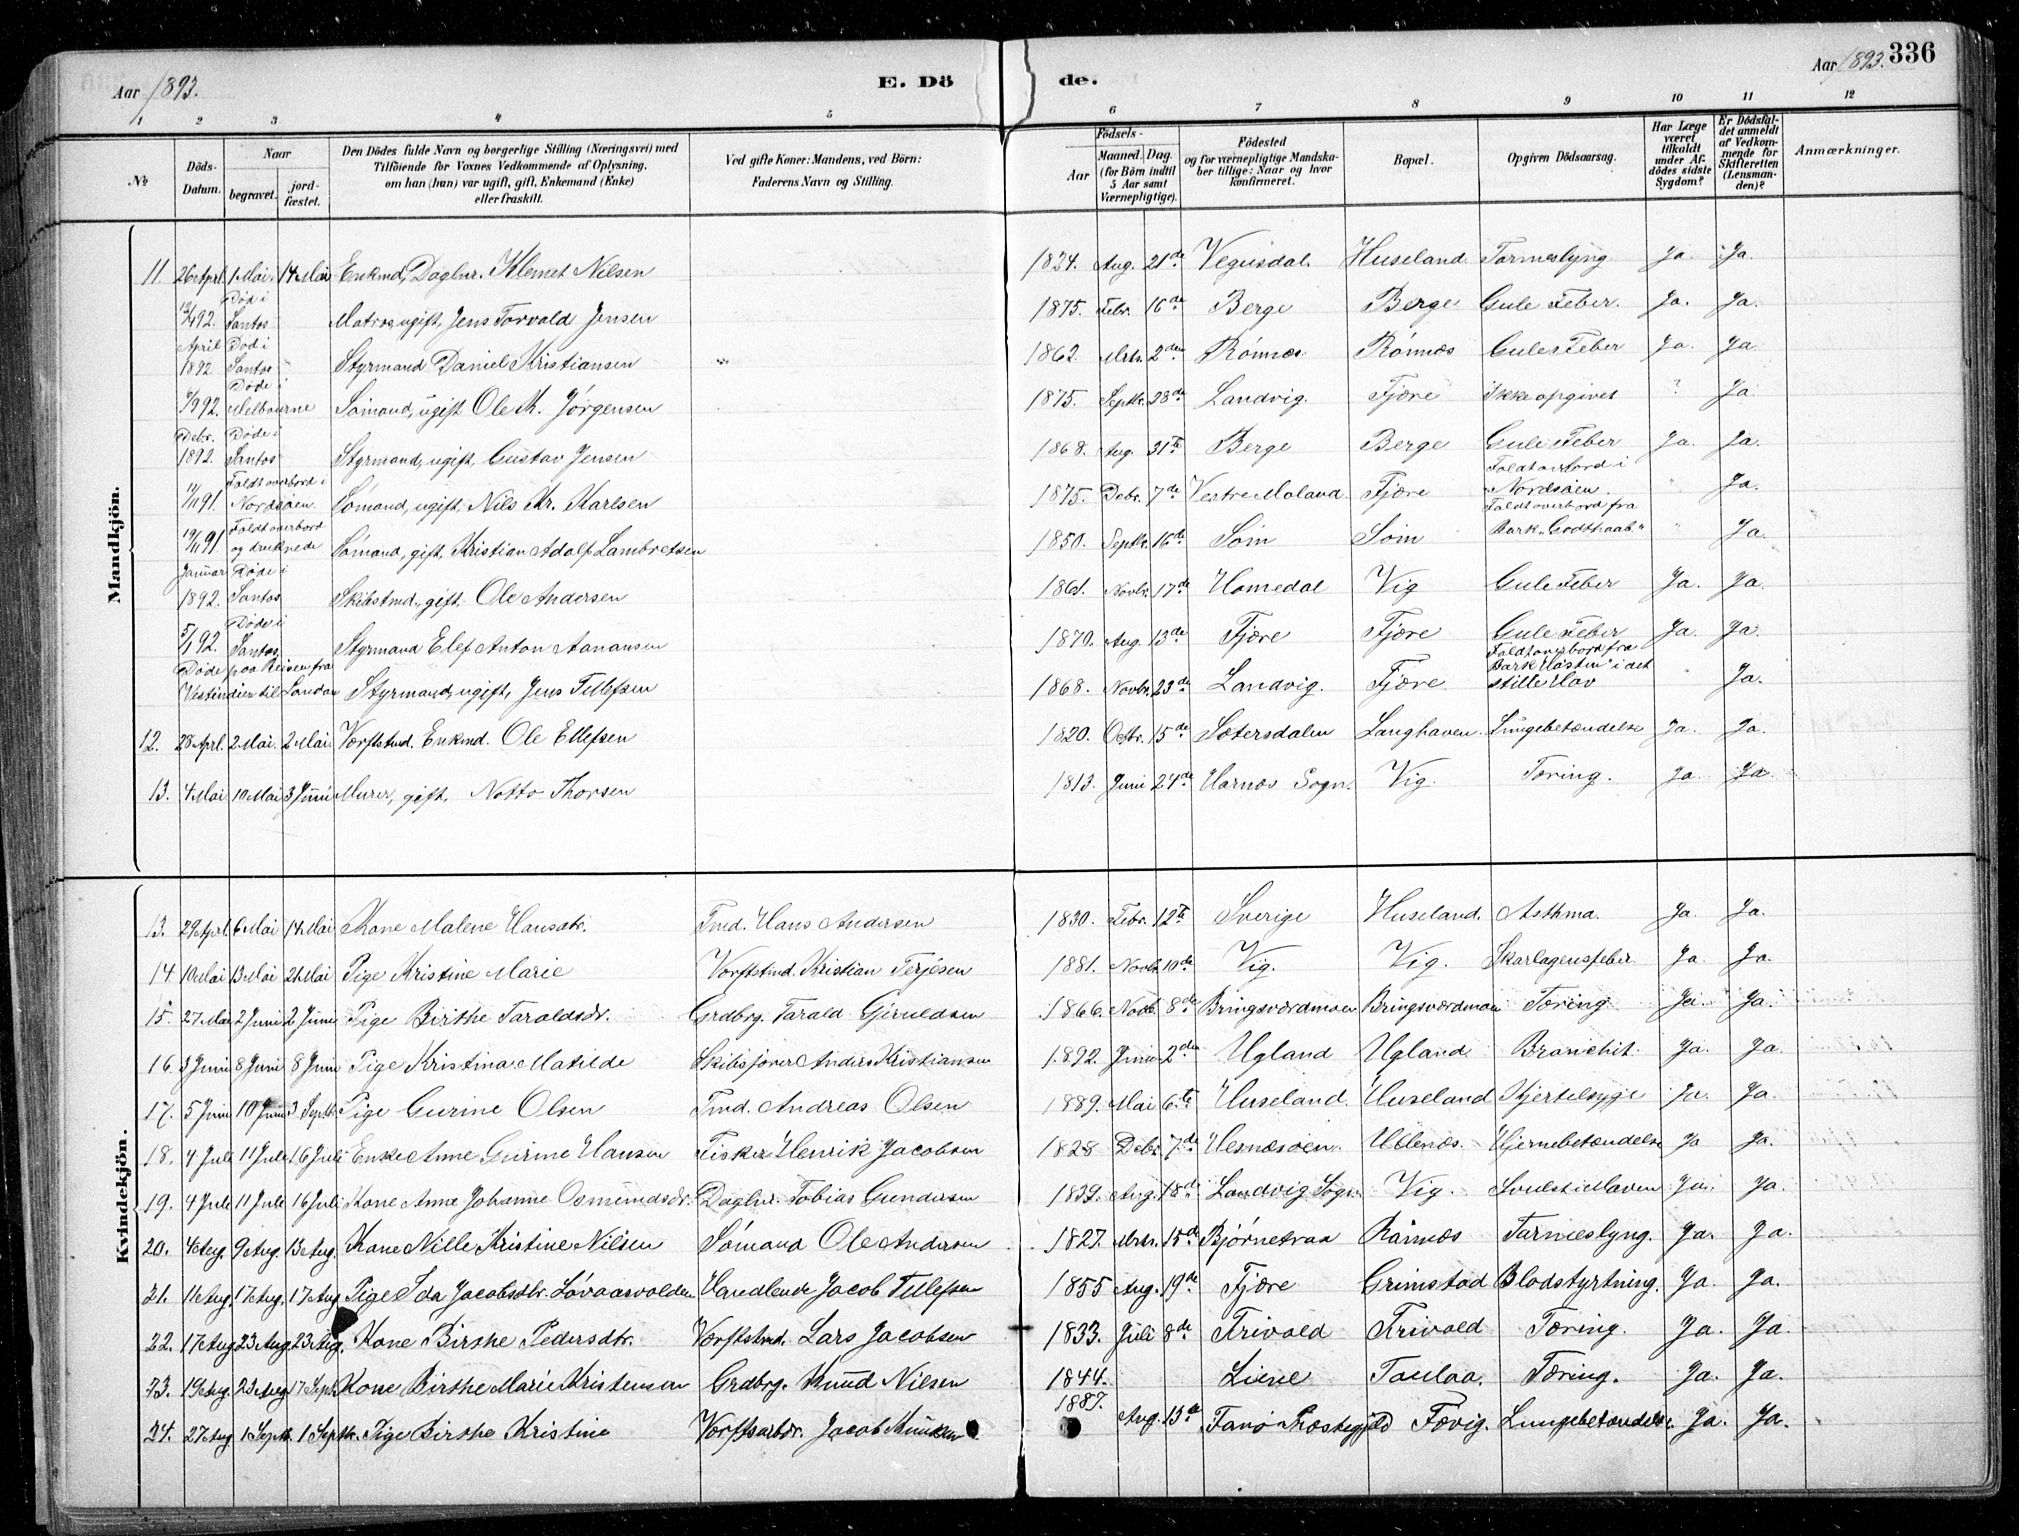 Aar 1893.
E. Döde.
Aar 1893. 336
1 2 3 4 5 6 7 8 9 10 11 12
No
Döds-Datum.
Naar
begravet.
jord-fæstet.
Den Dödes fulde Navn og borgerlige Stilling (Næringsvei) med
Tilföiende for Voxnes Vedkommende af Oplysning.
om han (hun) var ugift, gift, Enkemand (Enke)
eller fraskilt.
Ved gifte Koner: Mandens, ved Börn:
Faderens Navn og Stilling.
Födsels-
Aar
Maaned. Dag.
(for Börn indtil
5 Aar samt
Værnepligtige).
Födested
og for værnepligtige Mandska-
ber tillige: Naar og hvor
konfirmeret.
Bopæl.
Opgiven Dödsaarsag.
Har Læge
været
tilkaldt
under Af-
dödes sidste
Sygdom?
Er Dödsfal-
det anmeldt
af Vedkom-
mende for
Skifteretten
(Lensman-
den)?
Anmærkninger.
Mandkjön.
11. 26 Apri. 1 Mai. 14 Mai Enkmd, Daglnr. Klemet Nilsen 1834. Aug. 21de Vegusdal. Huseland. Tarmeslyng Ja. Ja.
92. Död i Santos Matros, ugift, Jens Torvald Jensen 1875. Febr. 16de Berge Berge Gule Feber. Ja. Ja.
April 1892 Död i Santos Styrmand Daniel Kristiansen 1862. Mrts. 2den Rönnæs. Rönnæs Gule Feber Ja. Ja
92. Döde i Melbourne Sömand, ugift Ole K. Jörgensen 1875. Septbr. 28de Landvig. Fjære Ikke opgivet ? Ja
Debr. 1892. Döde i Santos Styrmand, ugift, Gustav Jensen 1868. Aug. 31te Berge Berge Gule Feber Ja. Ja.
11/11 91. Faldt overbord i Nordsöen. Sömand, ugift, Nils Kr. Karlsen 1875. Debr. 7de Vestre Moland. Fjære Faldt overbord i Nordsöen. " Ja.
19/11 91 Faldt overbord og druknede Sömand, gift, Kristian Adolf Lambretsen 1850. Septbr. 16de Söm Söm Faldt overbord fra Bark „Godthaab" " Ja.
Januar 1892. Döde i Santos Skibstmd., gift. Ole Andersen 1861. Novbr. 17de Homedal Vig Gule Feber Ja. Ja.
5/1 92. Döde i Santos. Styrmand Elef Anton Aanansen 1870. Aug. 13de Fjære Fjære Gule Feber Ja. Ja.
Döde paa Reisen fra Vestindien til London Styrmand, ugift, Jens Tellefsen 1868. Novbr. 23de Landvig. Fjære. Faldt overbord fra Bark i det stille Hav " Ja.
12. 28 Apri. 2 Mai. 2 Mai. Værftstmd. Enkmd. Ole Ellefsen 1820. Octr. 15de Sætersdalen Langhaven. Lungebetændelse Ja. Ja.
13. 4 Mai 10 Mai 3 Juni Murer, gift, Notto Thorsen 1813. Juni 24de Harnæs Sogn. Vig. Tæring. Ja. Ja.
Kvindekjön.
13. 29 Apri. 6 Mai 14 Mai Kone Malene Hansdtr. Tmd. Hans Andersen 1830. Febr. 12te Sverige Huseland. Asthma. Ja. Ja.
14. 10 Mai 13 Mai 21 Mai Pige Kristine Marie Værftstmd. Kristian Terjesen 1881. Novbr. 10de Vig. Vig. Skarlagensfeber Ja. Ja.
15. 27 Mai 2 Juni 2 Juni Pige Birthe Taraldsdr. Grdbrg. Tarald Gjeruldsen 1866. Novb. 8de Bringsværdmoen Bringsværdmoen Tæring Ja. Ja.
16. 3 Juni 8 Juni 8 Juni Pige Kristina Matilde Skibsförer Anders Kristiansen 1892. Juni 2den Ugland Ugland Bronchit. Ja. Ja.
17. 5 Juni 10 Juni 3 Septbr. Pige Gurine Olsen Tmd. Andreas Olsen 1889. Mai 6te Huseland. Huseland Hjertesyge Ja. Ja.
18. 4 Juli 11 Juli 16 Juli Enke Anne Gurine Hansen Fisker Henrik Jacobsen 1828 Debr. 7de Hesnæsöen. Ullenæs. Hjernebetændelse Ja Ja.
19. 4 Juli 11 Juli 16 Juli Kone Anne Johanne Osmundsdr. Daglnr. Tobias Gundersen 1839. Aug. 18de Landvig Sogn Vig. Svulst i Maven Ja. Ja.
20. 4 Aug. 9 Aug. 13 Aug. Kone Nille Kristine Nilsen Sömand Ole Andersen 1827. Mrts. 15de Bjørnetraa Rönnæs Tarmeslyng. Ja. Ja.
21. 11 Aug. 17 Aug. 17 Aug Pige Ida Jacobsdtr. Lövaasvolden Handlende Jacob Tellefsen 1855 Aug. 19de Fjære Grimstad Blodstyrtning. Ja. Ja.
22. 17 Aug 23 Aug 23 Aug. Kone Birthe Pedersdtr. Værftstmd. Lars Jacobsen 1833. Juli 8de Trivold Trivold Tæring. Ja. Ja.
23. 19 Aug. 23 Aug 17 Sept. Kone Birthe Marie Kristensen Grdbrg. Knud Nilsen 1844. Liene Taulaa. Tæring. Ja. Ja.
24. 27 Aug 1 Septb. 1 Septbr. Pige Birthe Kristine Værftsarbdr. Jacob Knudsen 1887. Aug. 13de Præstegjeld Fævig. Lungebetændelse. Ja. Ja.